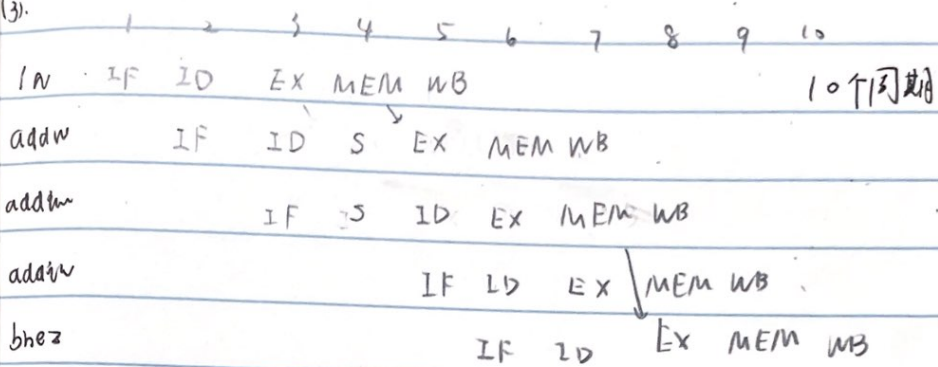 (3).
1 2 3 4 5 6 7 8 9 10
lw IF ID EX MEM WB 10个周期
addw IF ID S EX MEM WB
addiw IF S ID EX MEM WB
addiw IF ID EX MEM WB
bnez IF ID EX MEM WB